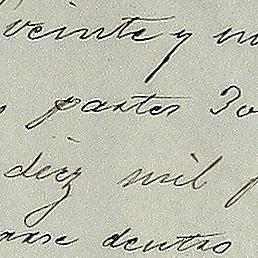 veinte y un
partes 30
diez mil p
arse dentro